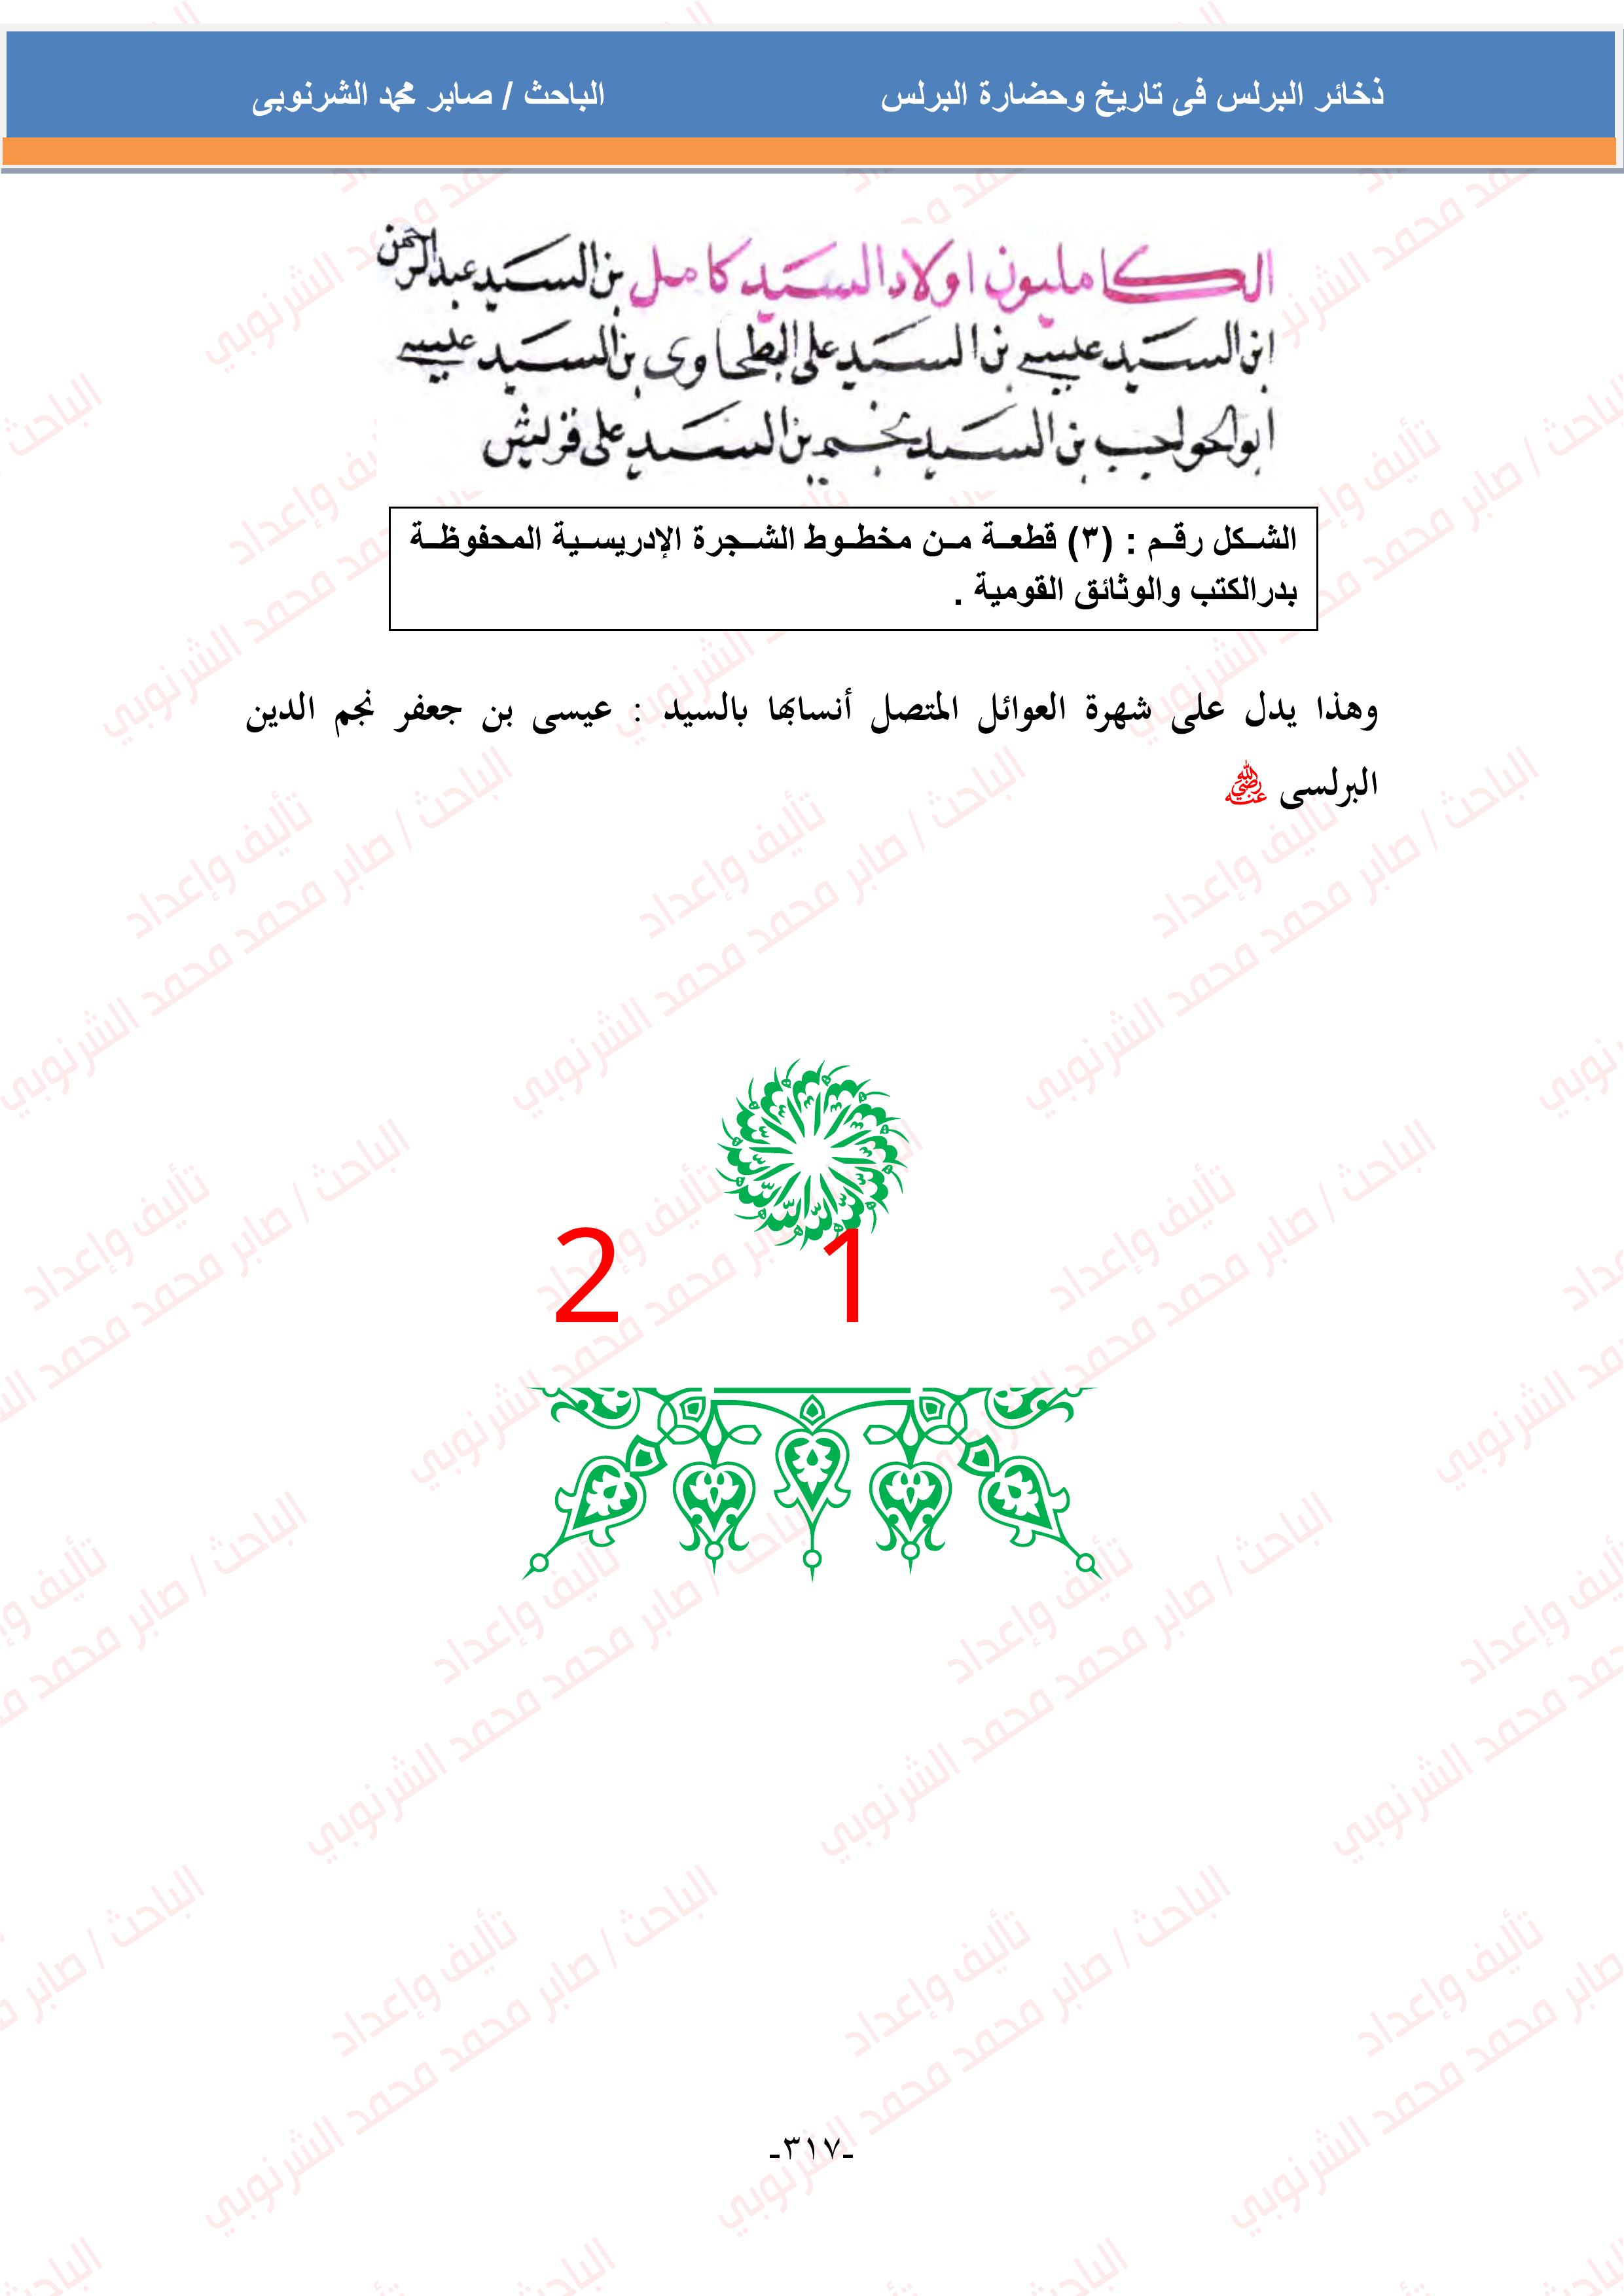 ذخائر البرلس فى تاريخ وحضارة البرلس الباحث / صابر محمد الشرنوبى
الكامليون اولاد السيد كامل بن السيد عبد الرحمن
ابن السيد عيسى بن السيد على البطحاوى بن السيد عيسى
ابو الحواجب بن السيد نجم بن السيد على قرليش
الشكل رقم : (٣) قطعة من مخطوط الشجرة الإدريسية المحفوظة
بدرالكتب والوثائق القومية .
وهذا يدل على شهرة العوائل المتصل أنسابها بالسيد : عيسى بن جعفر نجم الدين
البرلسى رضي الله عنه
2 1
-٣١٧-
تأليف وإعداد
الباحث / صابر محمد محمد الشرنوبي